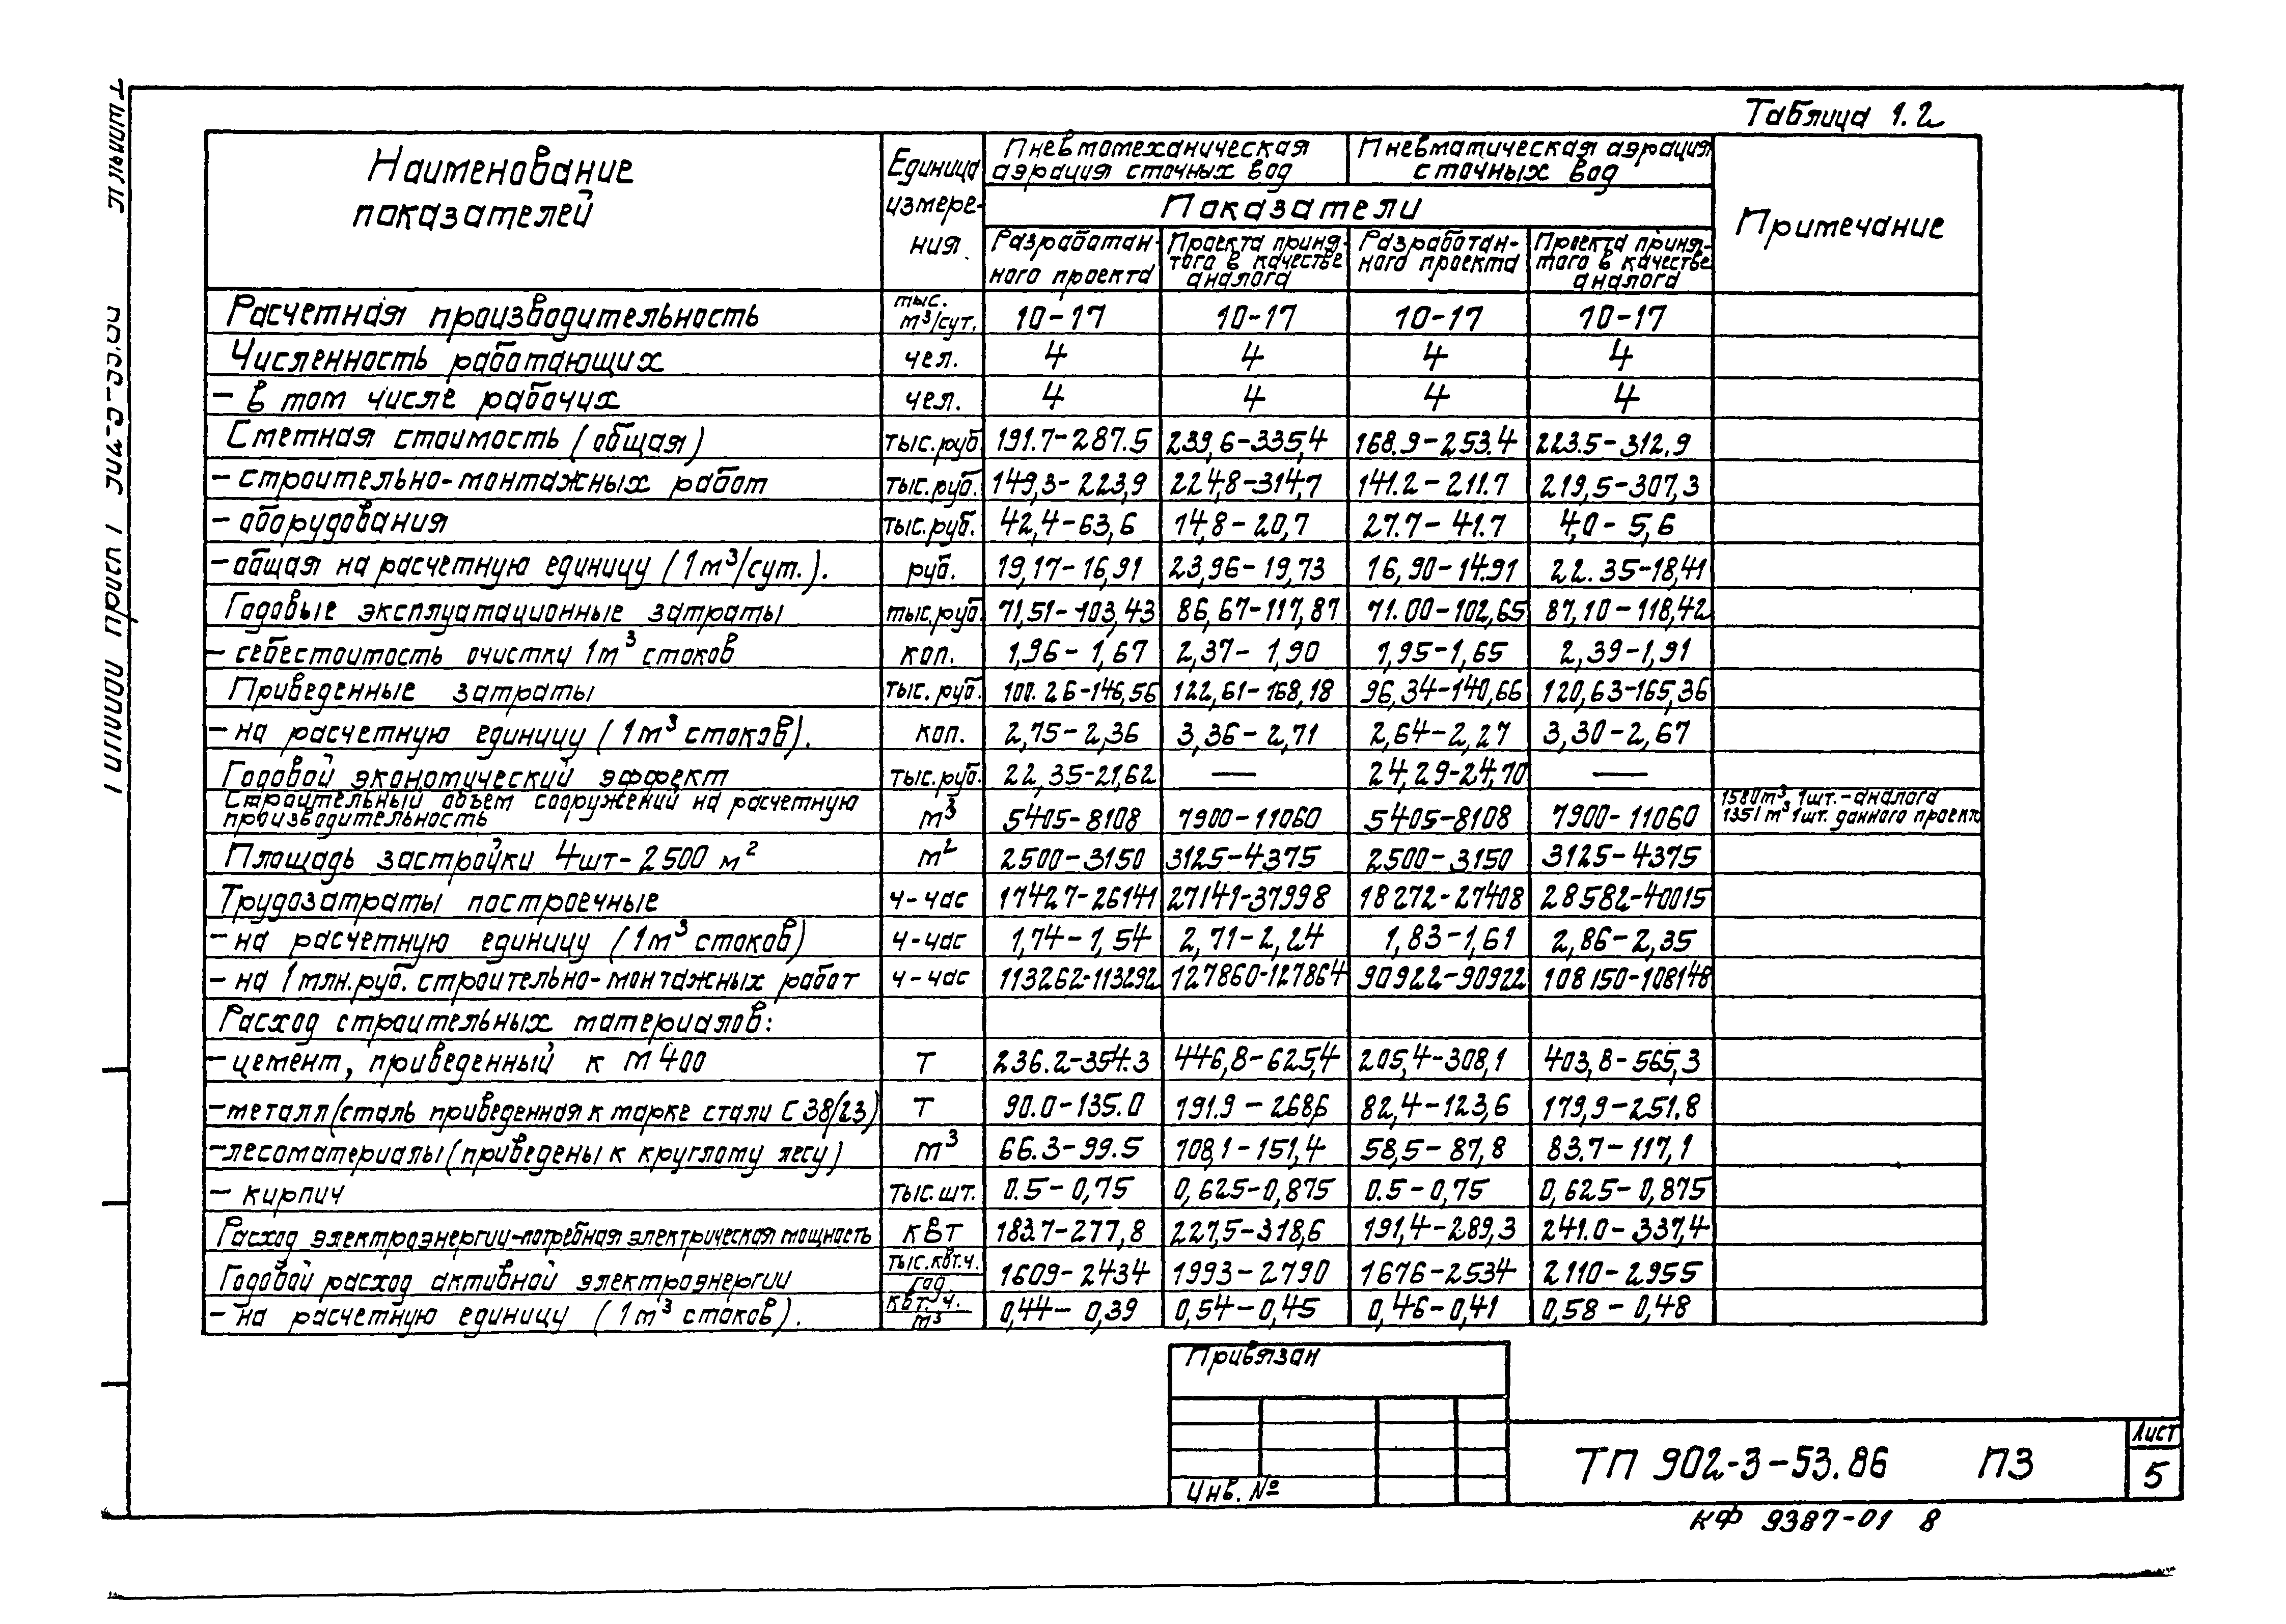 Таблица 1.2
Наименование показателей | Единица измере-ния | Пневмомеханическая аэрация сточных вод | Пневматическая аэрация сточных вод | Примечание
Показатели
Разработан-ного проекта | Проекта приня-того в качестве аналога | Разработан-ного проекта | Проекта приня-того в качестве аналога
Расчетная производительность | тыс. м³/сут. | 10-17 | 10-17 | 10-17 | 10-17
Численность работающих | чел. | 4 | 4 | 4 | 4
- в том числе рабочих | чел. | 4 | 4 | 4 | 4
Сметная стоимость (общая) | тыс.руб | 191.7-287.5 | 239,6-335,4 | 168.9-253.4 | 223.5-312,9
- строительно-монтажных работ | тыс.руб. | 149,3-223,9 | 224,8-314,7 | 141.2-211.7 | 219,5-307,3
- оборудования | тыс.руб. | 42,4-63,6 | 14,8-20,7 | 27.7-41.7 | 4,0-5,6
- общая на расчетную единицу (1м³/сут.). | руб. | 19,17-16,91 | 23,96-19,73 | 16,90-14,91 | 22.35-18,41
Годовые эксплуатационные затраты | тыс.руб. | 71,51-103,43 | 86,67-117,87 | 71.00-102,65 | 87,10-118,42
- себестоимость очистку 1м³ стоков | коп. | 1,96-1,67 | 2,37-1,90 | 1,95-1,65 | 2,39-1,91
Приведенные затраты | тыс.руб. | 100.26-146,56 | 122,61-168,18 | 96,34-140,66 | 120,63-165,36
- на расчетную единицу (1м³ стоков). | коп. | 2,75-2,36 | 3,36-2,71 | 2,64-2,27 | 3,30-2,67
Годовой экономический эффект | тыс.руб. | 22,35-21,62 | — | 24,29-24,70 | —
Строительный объем сооружений на расчетную производительность | м³ | 5405-8108 | 7900-11060 | 5405-8108 | 7900-11060 | 1580м³, 1шт.-аналога 1351м³ 1шт. данного проекта
Площадь застройки 4шт-2500 м² | м² | 2500-3150 | 3125-4375 | 2500-3150 | 3125-4375
Трудозатраты построечные | ч-час | 17427-26141 | 27141-37998 | 18272-27408 | 28582-40015
- на расчетную единицу (1м³ стоков) | ч-час | 1,74-1,54 | 2,71-2,24 | 1,83-1,61 | 2,86-2,35
- на 1 млн.руб. строительно-монтажных работ | ч-час | 113262-113292 | 127860-127864 | 90922-90922 | 108150-108148
Расход строительных материалов:
- цемент, приведенный к М400 | Т | 236.2-354.3 | 446,8-625,4 | 205,4-308,1 | 403,8-565,3
- металл (сталь приведенная к марке стали С38/23) | Т | 90.0-135.0 | 191.9-268,6 | 82,4-123,6 | 179,9-251.8
- лесоматериалы (приведены к круглому лесу) | м³ | 66.3-99.5 | 108,1-151,4 | 58,5-87,8 | 83.7-117,1
- кирпич | тыс.шт. | 0.5-0,75 | 0,625-0,875 | 0.5-0,75 | 0,625-0,875
Расход электроэнергии-потребная электрическая мощность | кВт | 183.7-277,8 | 227,5-318,6 | 191,4-289,3 | 241.0-337,4
Годовой расход активной электроэнергии | тыс.квт.ч./год | 1609-2434 | 1993-2790 | 1676-2534 | 2110-2955
- на расчетную единицу (1м³ стоков). | квт.ч./м³ | 0,44-0,39 | 0,54-0,45 | 0,46-0,41 | 0,58-0,48
Привязан
Инв. №
ТП 902-3-53.86 ПЗ
Лист
5
КФ 9387-01 8